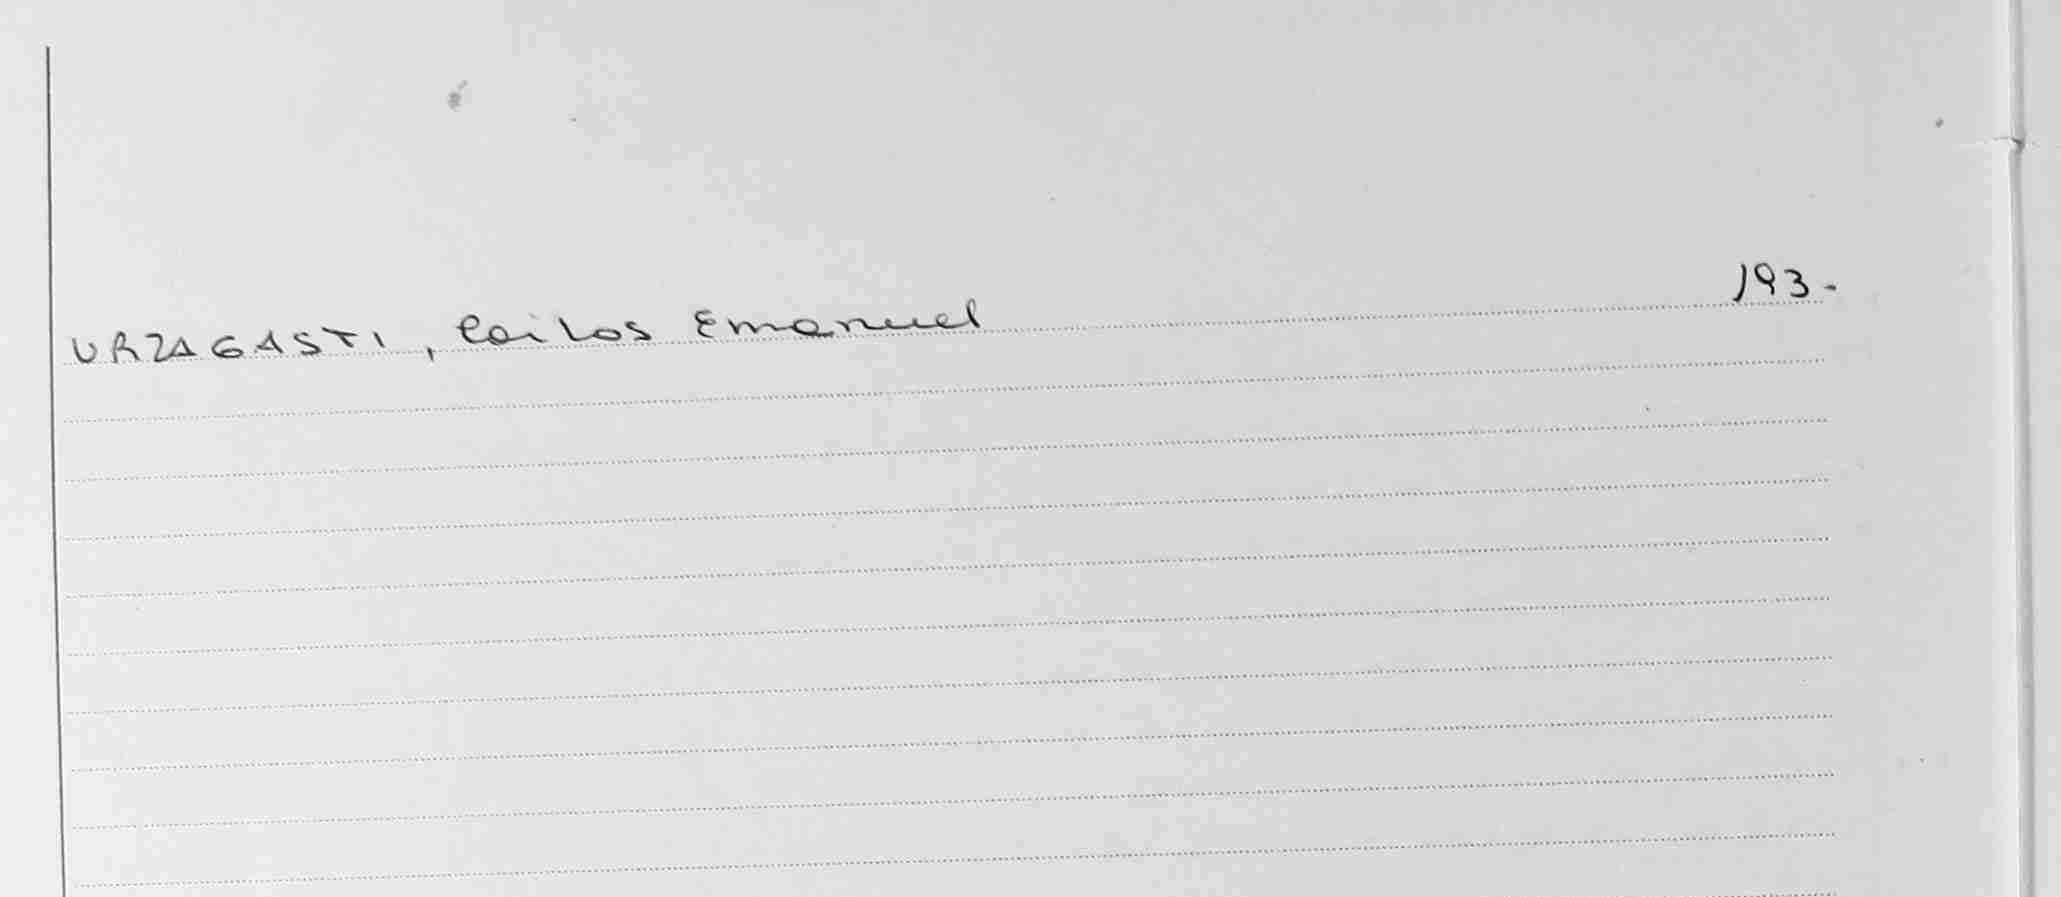 URZAGASTI, Carlos Emanuel 193.-